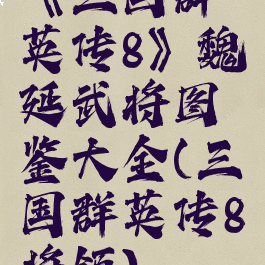 《三国群
英传8》魏
延武将图
鉴大全(三
国群英传8
将领)